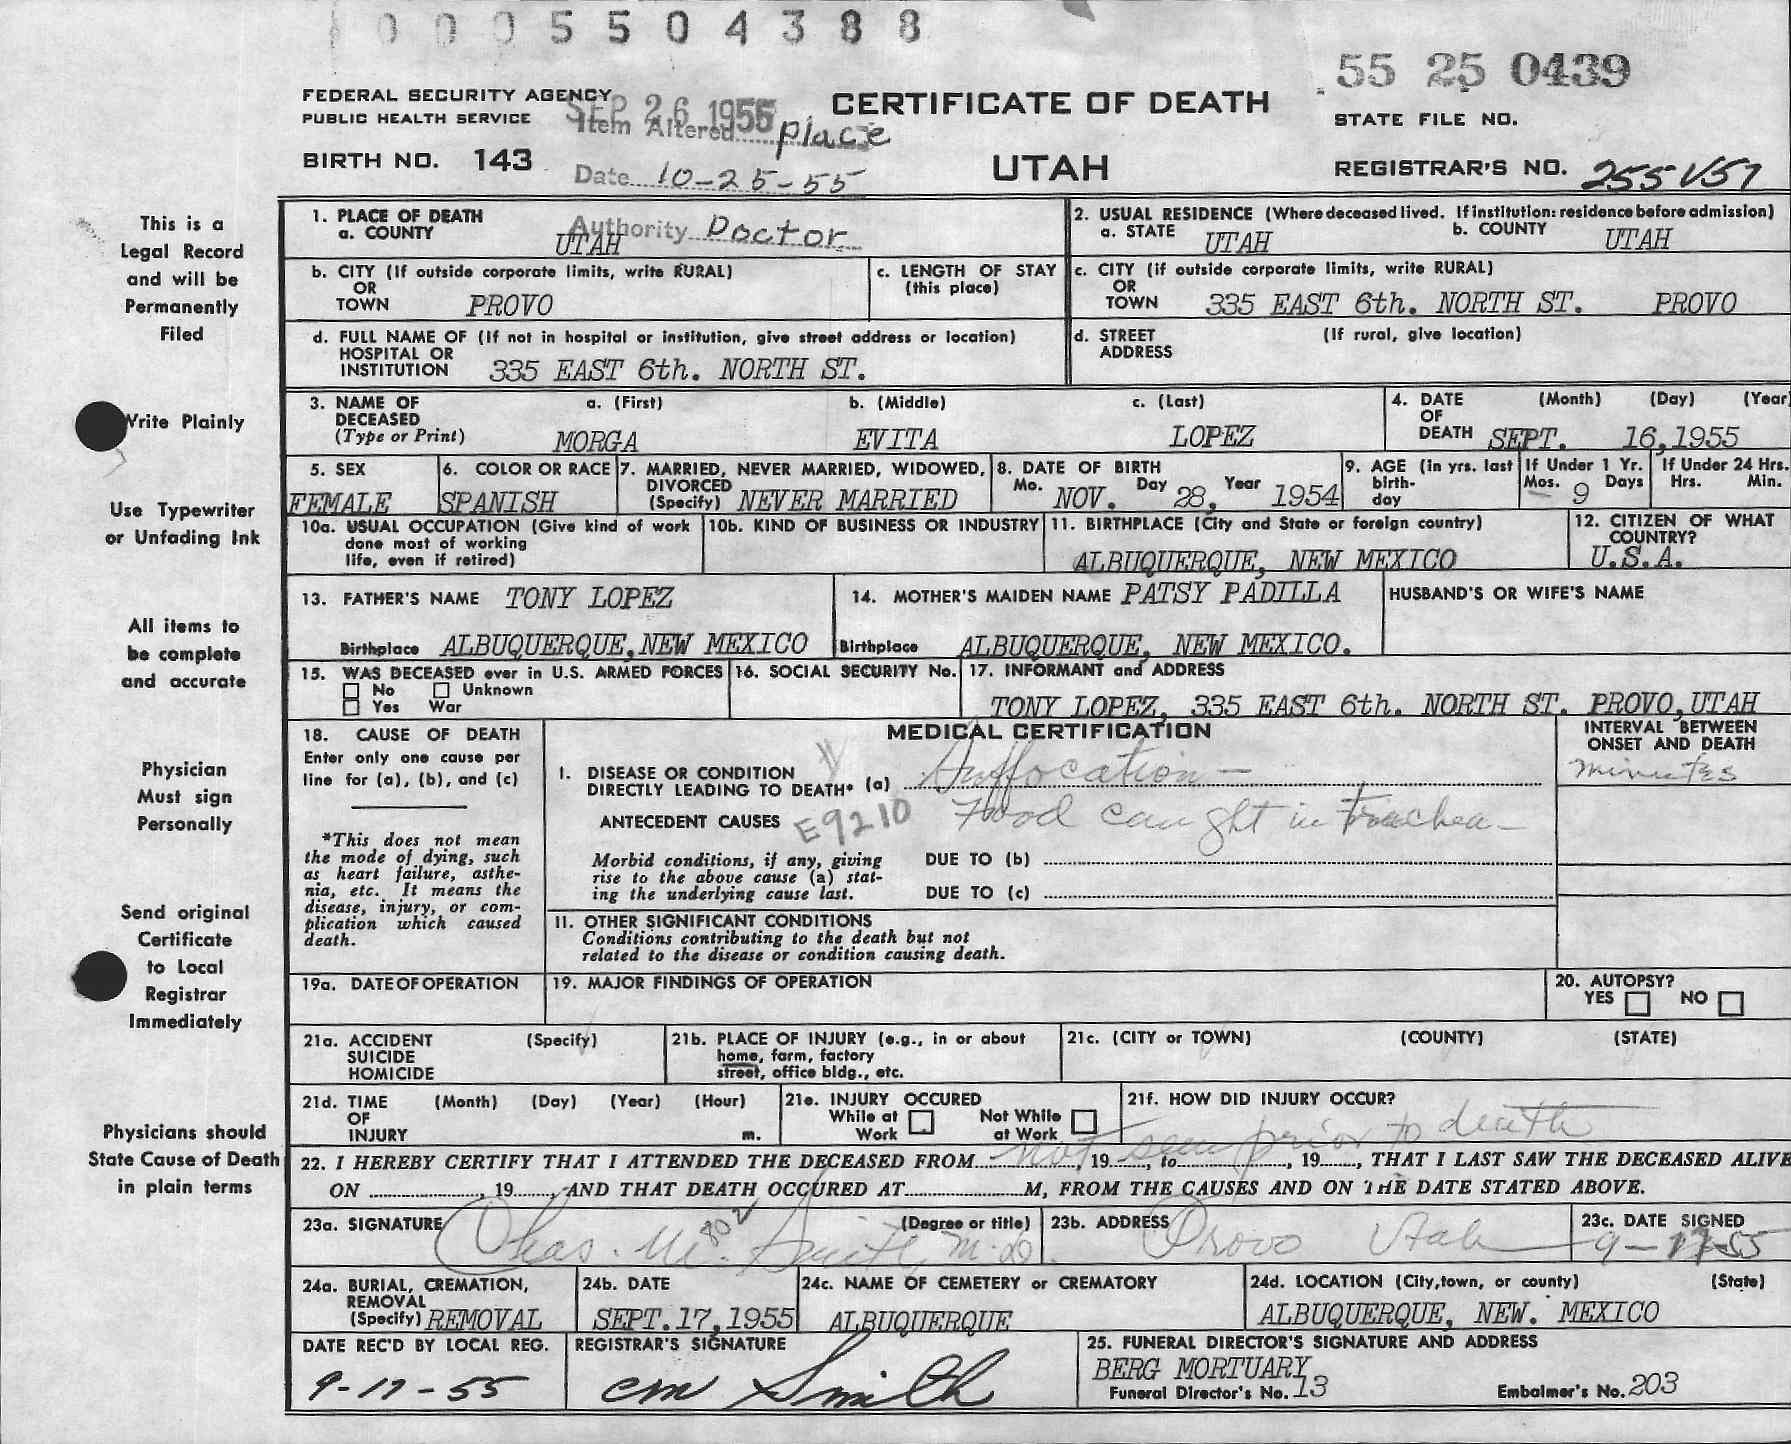 0005504388
55 25 0439
FEDERAL SECURITY AGENCY
PUBLIC HEALTH SERVICE
SEP 26 1955
Item Altered place
CERTIFICATE OF DEATH
STATE FILE NO.
BIRTH NO. 143
Date 10-25-55
UTAH
REGISTRAR'S NO. 255 V57
Authority Doctor
This is a
Legal Record
and will be
Permanently
Filed
Write Plainly
Use Typewriter
or Unfading Ink
All items to
be complete
and accurate
Physician
Must sign
Personally
Send original
Certificate
to Local
Registrar
Immediately
Physicians should
State Cause of Death
in plain terms
1. PLACE OF DEATH
a. COUNTY UTAH
2. USUAL RESIDENCE (Where deceased lived. If institution: residence before admission)
a. STATE UTAH b. COUNTY UTAH
b. CITY (If outside corporate limits, write RURAL)
OR
TOWN PROVO
c. LENGTH OF STAY
(this place)
c. CITY (if outside corporate limits, write RURAL)
OR
TOWN 335 EAST 6th. NORTH ST. PROVO
d. FULL NAME OF (If not in hospital or institution, give street address or location)
HOSPITAL OR
INSTITUTION 335 EAST 6th. NORTH ST.
d. STREET (If rural, give location)
ADDRESS
3. NAME OF a. (First) b. (Middle) c. (Last)
DECEASED
(Type or Print) MORGA EVITA LOPEZ
4. DATE (Month) (Day) (Year)
OF
DEATH SEPT. 16,1955
5. SEX
FEMALE
6. COLOR OR RACE
SPANISH
7. MARRIED, NEVER MARRIED, WIDOWED,
DIVORCED
(Specify) NEVER MARRIED
8. DATE OF BIRTH
Mo. NOV. Day 28, Year 1954
9. AGE (in yrs. last
birth-
day
If Under 1 Yr.
Mos. 9 Days
If Under 24 Hrs.
Hrs. Min.
10a. USUAL OCCUPATION (Give kind of work
done most of working
life, even if retired)
10b. KIND OF BUSINESS OR INDUSTRY
11. BIRTHPLACE (City and State or foreign country)
ALBUQUERQUE, NEW MEXICO
12. CITIZEN OF WHAT
COUNTRY?
U.S.A.
13. FATHER'S NAME TONY LOPEZ
Birthplace ALBUQUERQUE, NEW MEXICO
14. MOTHER'S MAIDEN NAME PATSY PADILLA
Birthplace ALBUQUERQUE, NEW MEXICO.
HUSBAND'S OR WIFE'S NAME
15. WAS DECEASED ever in U.S. ARMED FORCES
No Unknown
Yes War
16. SOCIAL SECURITY No.
17. INFORMANT and ADDRESS
TONY LOPEZ, 335 EAST 6th. NORTH ST. PROVO, UTAH
18. CAUSE OF DEATH
Enter only one cause per
line for (a), (b), and (c)
*This does not mean
the mode of dying, such
as heart failure, asthe-
nia, etc. It means the
disease, injury, or com-
plication which caused
death.
MEDICAL CERTIFICATION
INTERVAL BETWEEN
ONSET AND DEATH
I. DISEASE OR CONDITION
DIRECTLY LEADING TO DEATH* (a) Suffocation -
minutes
ANTECEDENT CAUSES E9210 Food caught in Trachea -
Morbid conditions, if any, giving
rise to the above cause (a) stat-
ing the underlying cause last.
DUE TO (b)
DUE TO (c)
II. OTHER SIGNIFICANT CONDITIONS
Conditions contributing to the death but not
related to the disease or condition causing death.
19a. DATE OF OPERATION
19. MAJOR FINDINGS OF OPERATION
20. AUTOPSY?
YES NO
21a. ACCIDENT (Specify)
SUICIDE
HOMICIDE
21b. PLACE OF INJURY (e.g., in or about
home, farm, factory
street, office bldg., etc.
21c. (CITY or TOWN) (COUNTY) (STATE)
21d. TIME (Month) (Day) (Year) (Hour)
OF
INJURY m.
21e. INJURY OCCURED
While at Work Not While at Work
21f. HOW DID INJURY OCCUR?
not seen prior to death
22. I HEREBY CERTIFY THAT I ATTENDED THE DECEASED FROM , 19 , to , 19 , THAT I LAST SAW THE DECEASED ALIVE
ON , 19 , AND THAT DEATH OCCURED AT M, FROM THE CAUSES AND ON THE DATE STATED ABOVE.
23a. SIGNATURE (Degree or title)
Chas. M. Smith M.D.
802
23b. ADDRESS
Provo Utah
23c. DATE SIGNED
9-17-55
24a. BURIAL, CREMATION,
REMOVAL
(Specify) REMOVAL
24b. DATE
SEPT.17,1955
24c. NAME OF CEMETERY or CREMATORY
ALBUQUERQUE
24d. LOCATION (City,town, or county) (State)
ALBUQUERQUE, NEW. MEXICO
DATE REC'D BY LOCAL REG.
9-17-55
REGISTRAR'S SIGNATURE
CM Smith
25. FUNERAL DIRECTOR'S SIGNATURE AND ADDRESS
BERG MORTUARY
Funeral Director's No. 13 Embalmer's No. 203